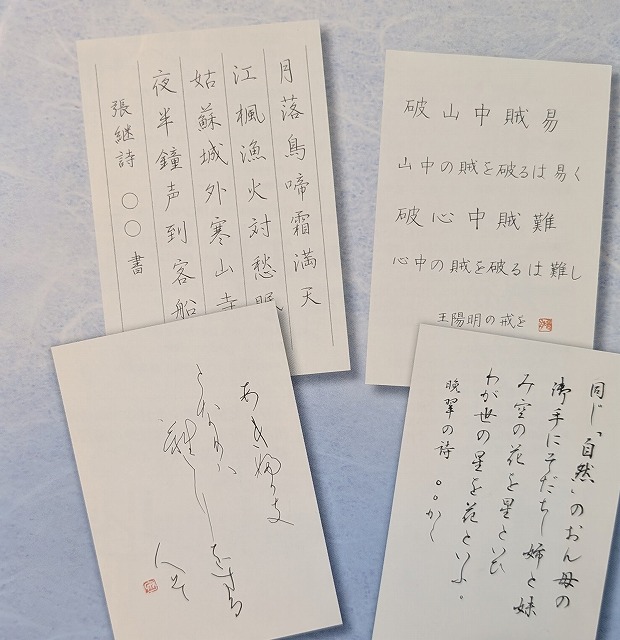 月落鳥啼霜満天
江楓漁火対愁眠
姑蘇城外寒山寺
夜半鐘声到客船
張継詩 〇〇書
破山中賊易
山中の賊を破るは易く
破心中賊難
心中の賊を破るは難し
王陽明の戒を
同じ「自然」のおん母の
御手にそだちし姉と妹
み空の花を星といひ
わが世の星を花といふ。
晩翠の詩 〇〇かく